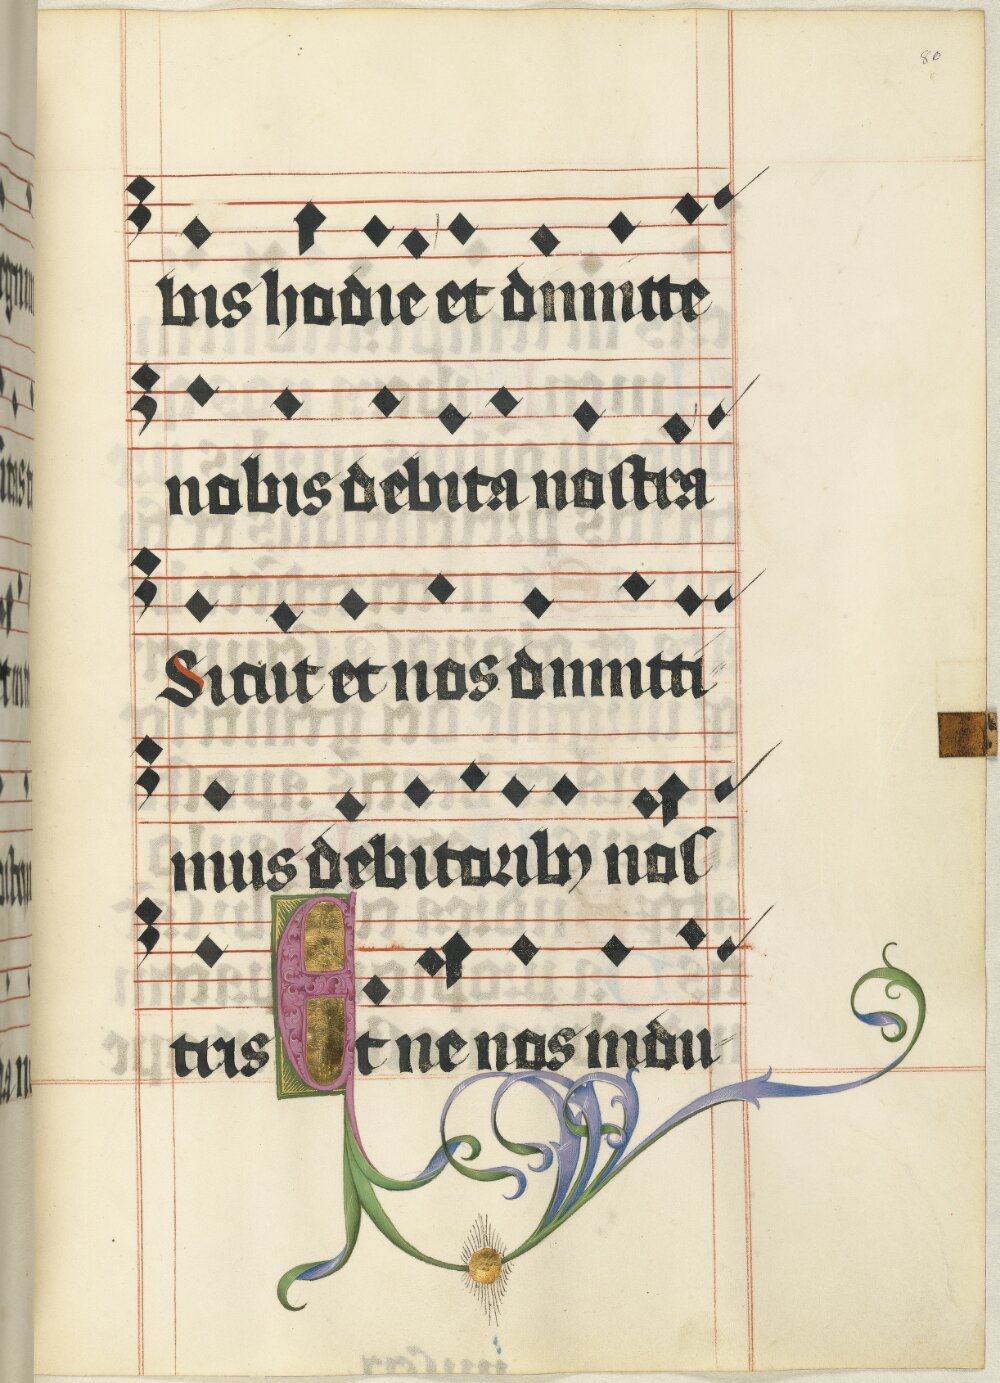 80
bis hodie et dimitte
nobis debita nostra
Sicut et nos dimitti
mus debitoribꝫ nos
tris Et ne nos indu